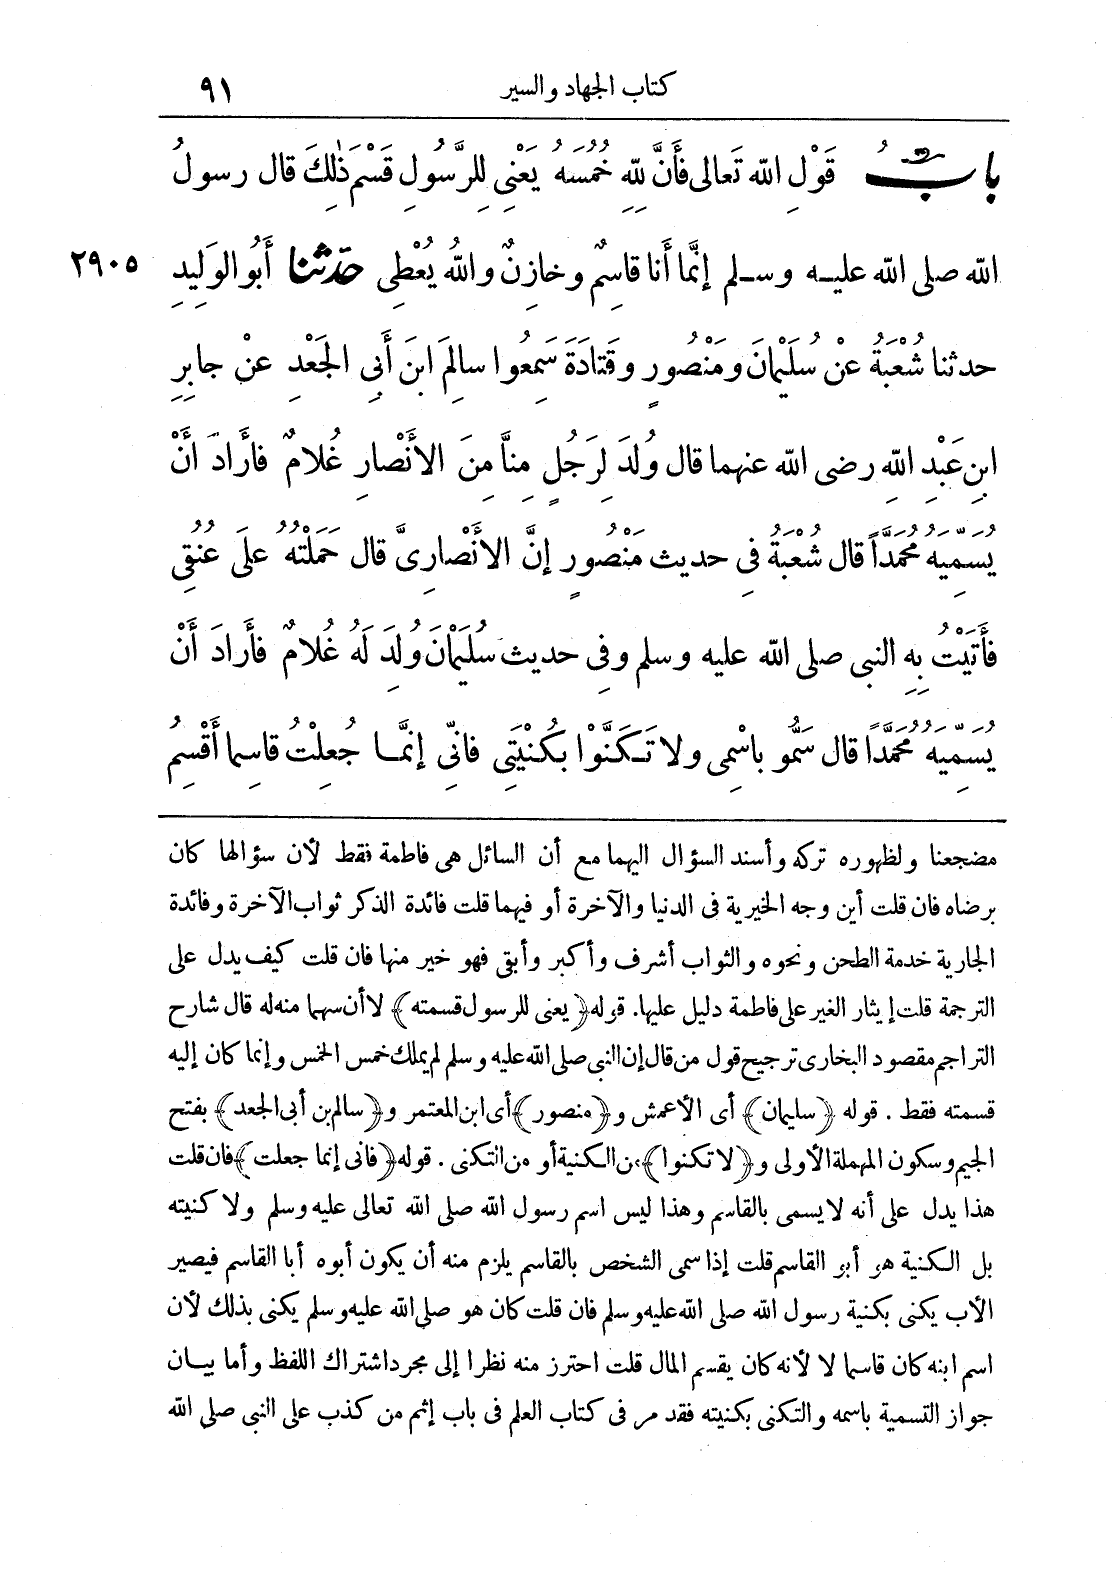 كتاب الجهاد والسير ٩١
بابُ قَوْلِ اللّٰه تَعالى فَأَنَّ لِلّٰهِ خُمُسَهُ يَعْنِى لِلرَّسُولِ قَسْمَ ذٰلِكَ قال رسولُ
اللّٰه صلى اللّٰه عليه وسلم إنَّما أَنا قاسِمٌ وخازِنٌ واللّٰهُ يُعْطِى حدّثنا أَبُو الوَلِيدِ ٢٩٠٥
حدثنا شُعْبَةُ عنْ سُلَيْمانَ ومَنْصُورٍ وقَتادَةَ سَمِعُوا سالِمَ ابنَ أَبِى الجَعْدِ عنْ جابِرِ
ابنِ عَبْدِ اللّٰهِ رضى اللّٰه عنهما قال وُلِدَ لِرَجُلٍ مِنَّا مِنَ الأَنْصارِ غُلامٌ فأَرادَ أَنْ
يُسَمِّيَهُ مُحَمَّدًا قال شُعْبَةُ فِى حديث مَنْصُورٍ إنَّ الأَنْصارِىَّ قال حَمَلْتُهُ على عُنُقِى
فأَتَيْتُ بِهِ النبى صلى اللّٰه عليه وسلم وفِى حديث سُلَيْمانَ وُلِدَ لَهُ غُلامٌ فأَرادَ أَنْ
يُسَمِّيَهُ مُحَمَّدًا قال سَمُّو باسْمِى ولا تَكَنَّوْا بكُنْيَتِى فانّى إنَّما جُعِلْتُ قاسِما أَقْسِمُ
مضجعنا ولظهوره تركه وأسند السؤال اليهما مع أن السائل هى فاطمة فقط لأن سؤالها كان
برضاه فان قلت أين وجه الخيرية فى الدنيا والآخرة أو فيهما قلت فائدة الذكر ثواب الآخرة وفائدة
الجارية خدمة الطحن ونحوه والثواب أشرف وأكبر وأبقى فهو خير منها فان قلت كيف يدل على
الترجمة قلت إيثار الغير على فاطمة دليل عليها. قوله ﴿يعنى للرسول قسمته﴾ لا أن سهما منه له قال شارح
التراجم مقصود البخارى ترجيح قول من قال إن النبى صلى اللّٰه عليه وسلم لم يملك خمس الخمس وإنما كان إليه
قسمته فقط . قوله ﴿سليمان﴾ أى الأعمش و﴿منصور﴾ أى ابن المعتمر و﴿سالم بن أبى الجعد﴾ بفتح
الجيم وسكون المهملة الأولى و﴿لا تكنوا﴾ من الكنية أو من التكنى . قوله ﴿فانى إنما جعلت﴾ فان قلت
هذا يدل على أنه لا يسمى بالقاسم وهذا ليس اسم رسول اللّٰه صلى اللّٰه تعالى عليه وسلم ولا كنيته
بل الكنية هو أبو القاسم قلت إذا سمى الشخص بالقاسم يلزم منه أن يكون أبوه أبا القاسم فيصير
الأب يكنى بكنية رسول اللّٰه صلى اللّٰه عليه وسلم فان قلت كان هو صلى اللّٰه عليه وسلم يكنى بذلك لأن
اسم ابنه كان قاسما لا لأنه كان يقسم المال قلت احترز منه نظرا إلى مجرد اشتراك اللفظ وأما بيان
جواز التسمية باسمه والتكنى بكنيته فقد مر فى كتاب العلم فى باب إثم من كذب على النبى صلى اللّٰه